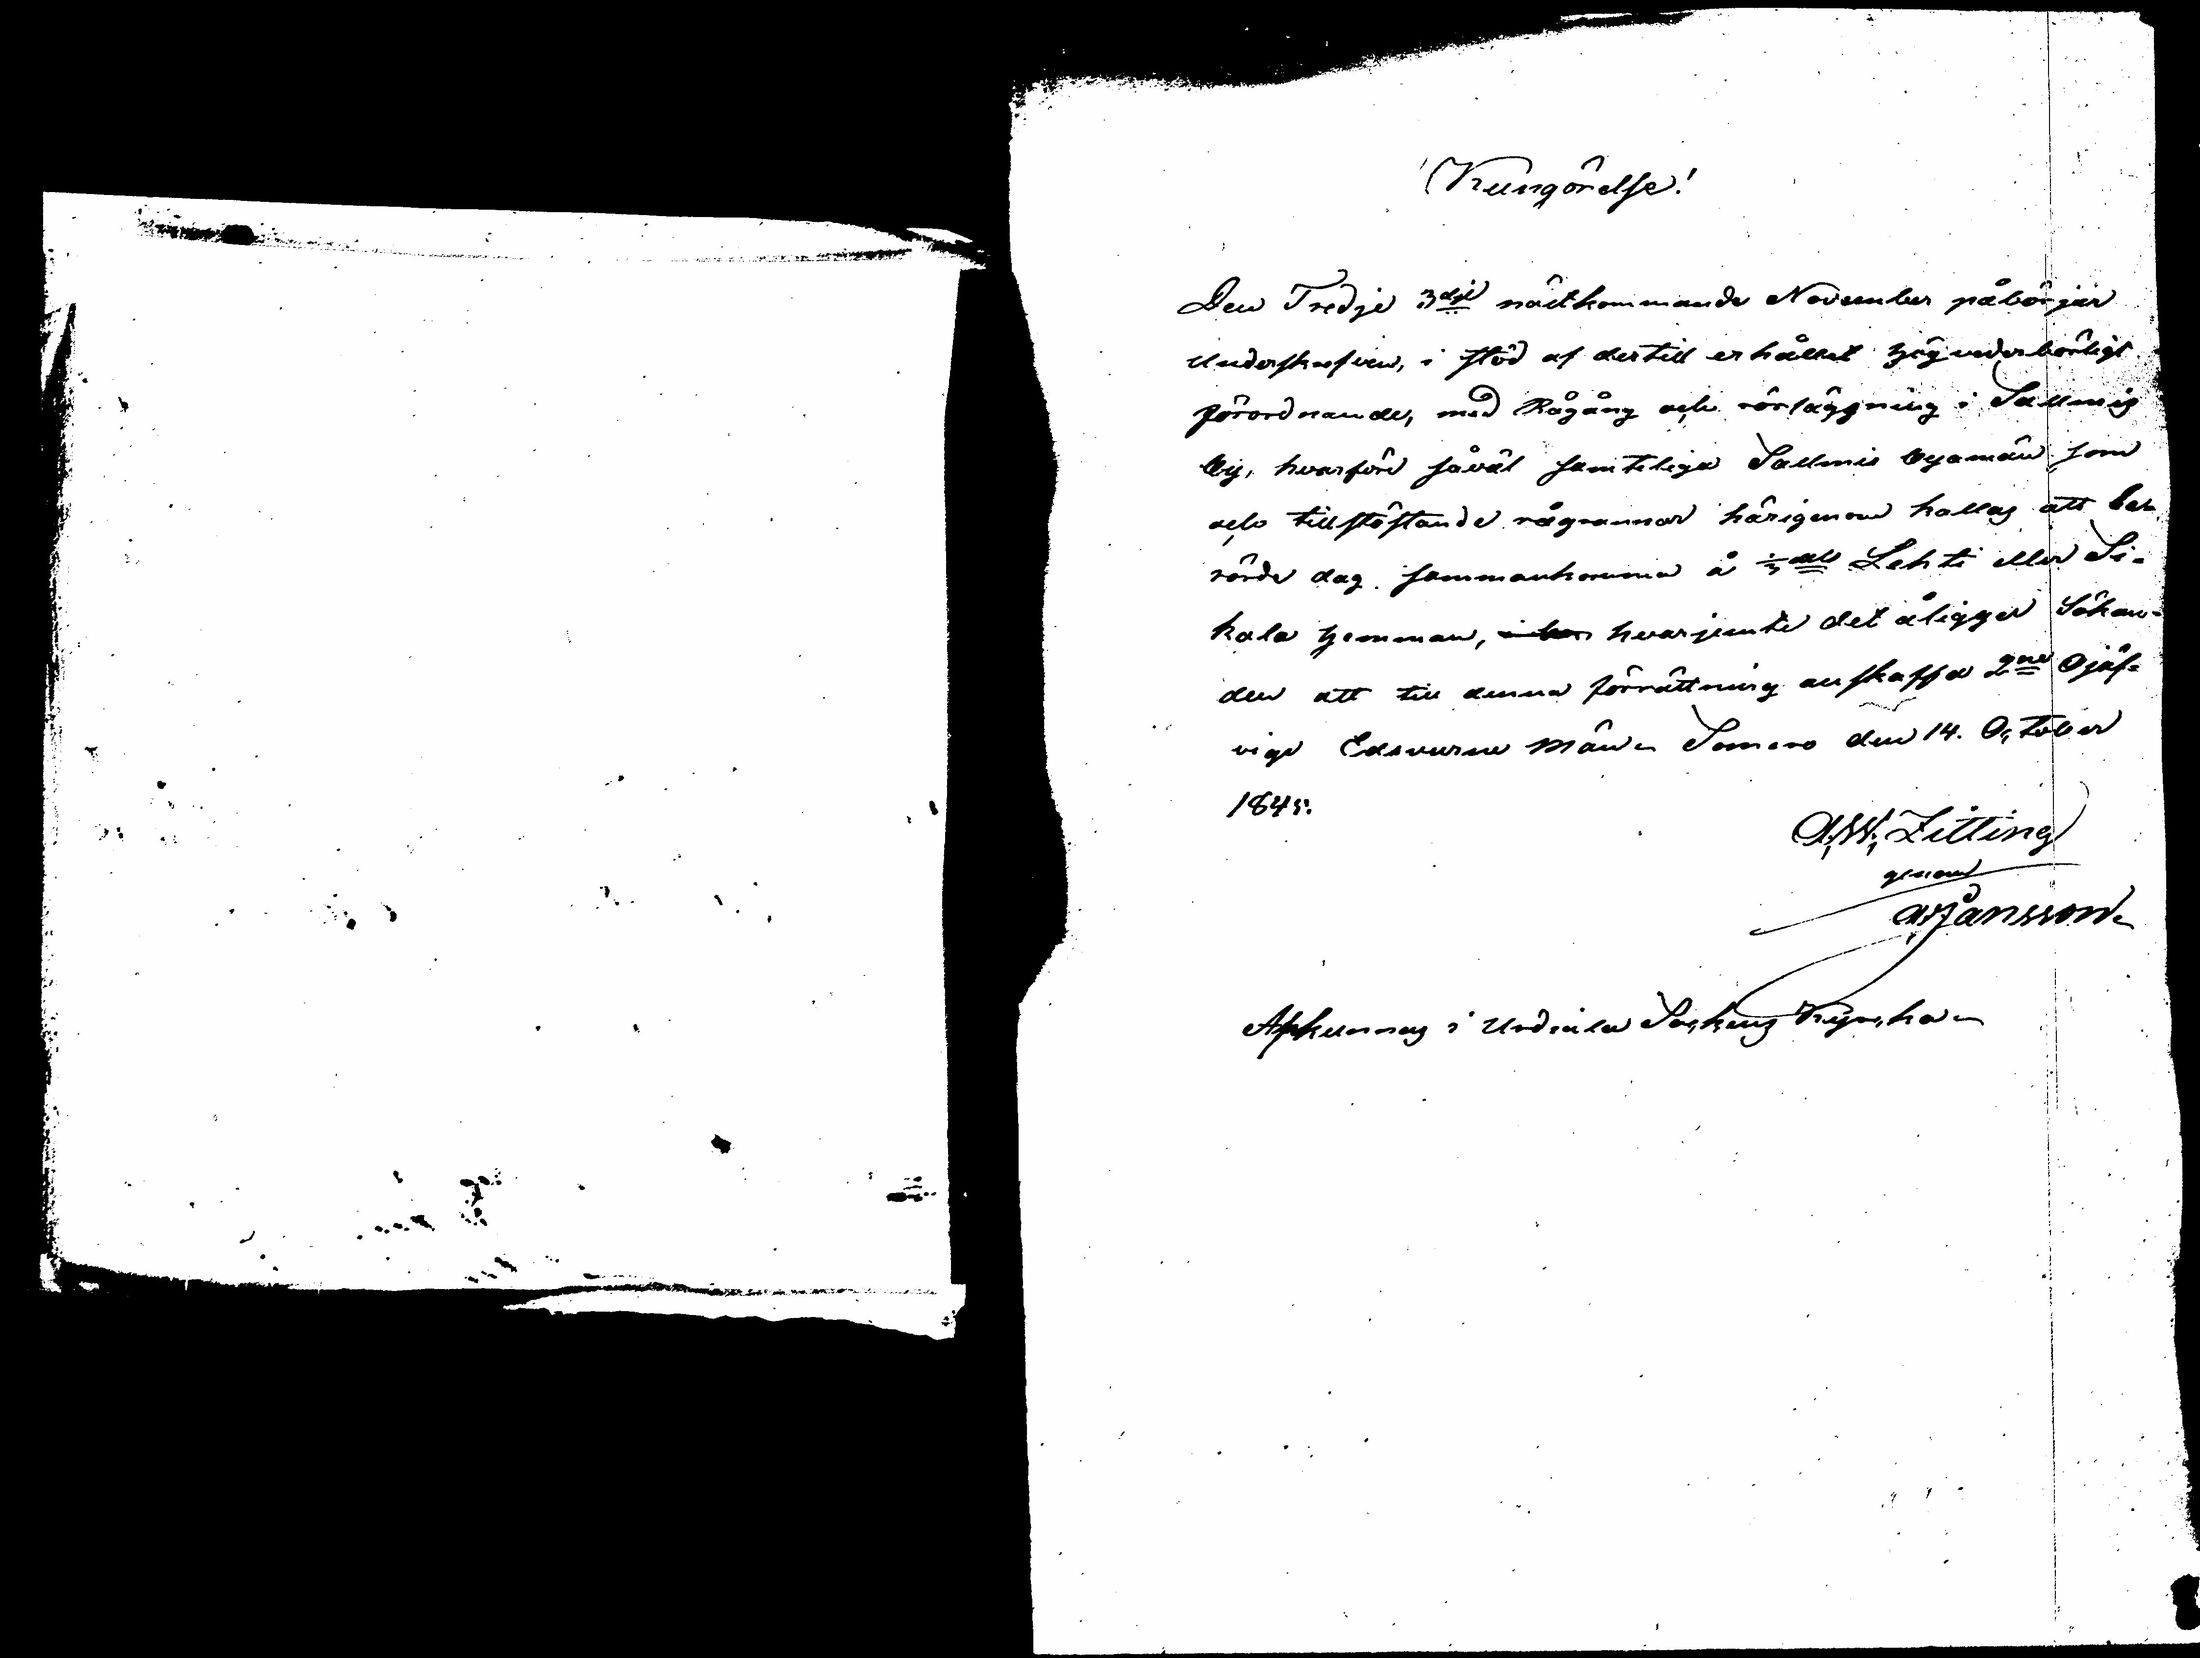 Kungörelse!
Den Tredje 3dje nästkommande November påbörjar
Underskrefven, i stöd af dertill erhållet högvederbörligt
förordnande, med Rågång och rörläggning i Sallmis
by, hvarföre såväl samtelige Sallmis byamän som
och tillstöstande rågrannar härigenom kallas att be-
rörde dag sammankomma å Lehti eller Si-
kala hemman, hvarjemte det åligger Sökan-
den att till denna förrättning anskaffa 2ne Ojäf-
vige Edsvurne Män. Somero den 14. October
1845.
A,W, Zitting
genom
Jansson
Afkunnas i Urdiala Sockens Kyrcka